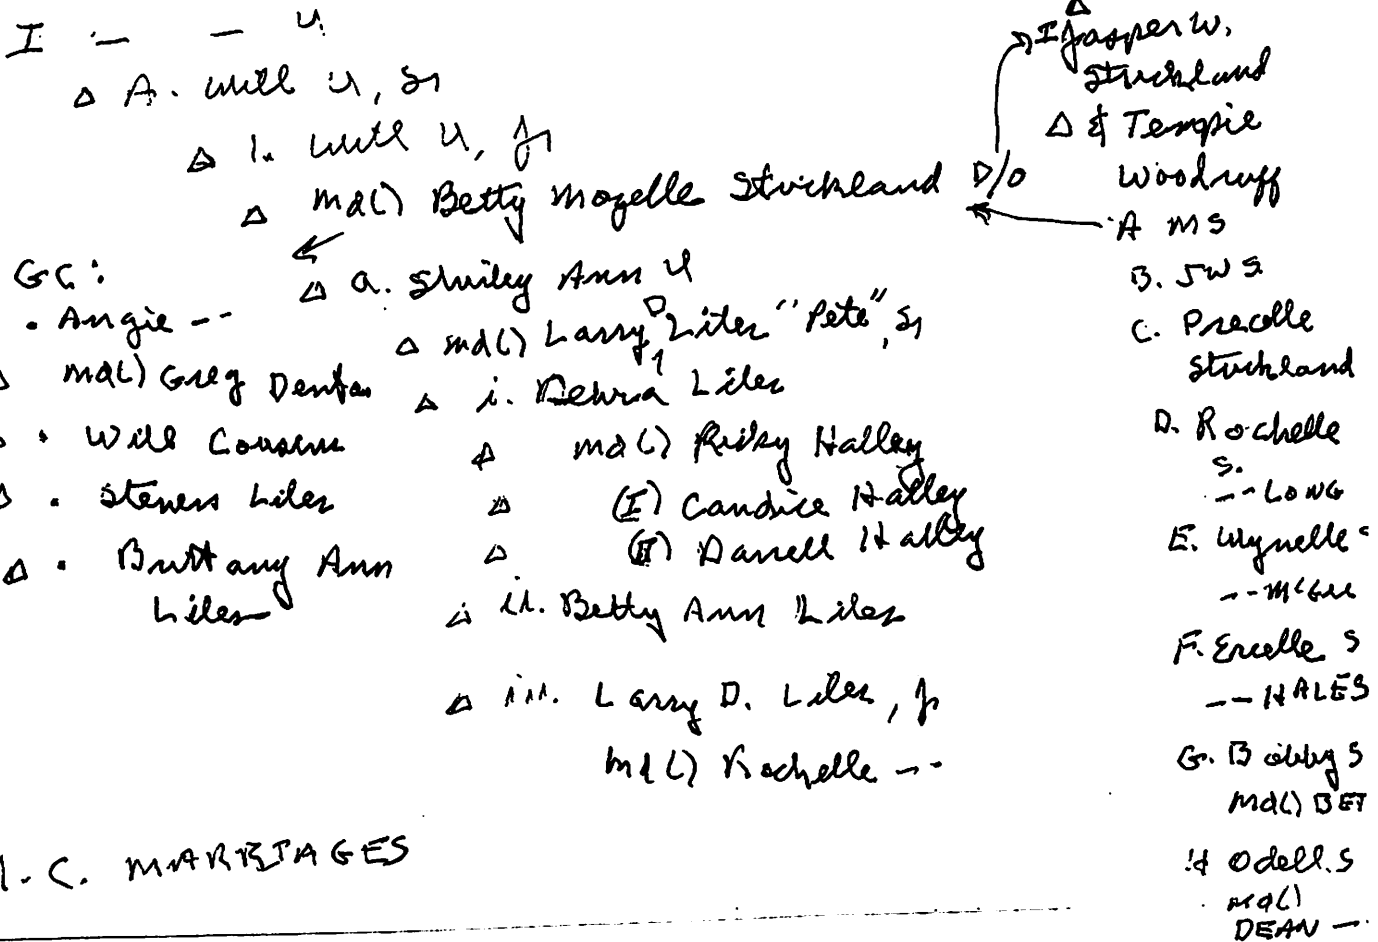 I -- -- U
Δ A. Will U, Sr
Δ 1. Will U, Jr
Δ md() Betty Mozelle Strickland D/O
Δ a. Shirley Ann U
Δ md() Larry D Liles "Pete", Sr
Δ i. Debra Liles
Δ md() Ricky Halley
Δ (I) Candice Halley
Δ (II) Darrell Halley
Δ ii. Betty Ann Liles
Δ iii. Larry D. Liles, Jr
md() Rochelle --
GC:
. Angie --
Δ md() Greg Denton
. Will
Δ . Liles
Δ . Brittany Ann
Liles
. C. MARRIAGES
Δ
I Jasper W.
Strickland
Δ & Tempie
Woodruff
A MS
B. JWS
C. Precelle
Strickland
D. Rochelle
S.
-- LONG
E. Wynelle
-- McGee
F. Ercelle S
-- HALES
G. Bobby S
md() BET
H Odell S
md()
DEAN --